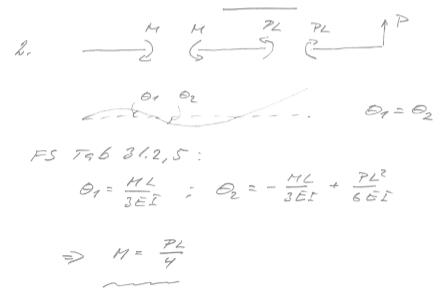 M M PL PL P
2.
θ1 θ2 θ1 = θ2
FS Tab 31.2,5 :
θ1 = ML/3EI ; θ2 = - ML/3EI + PL²/6EI
⇒ M = PL/4